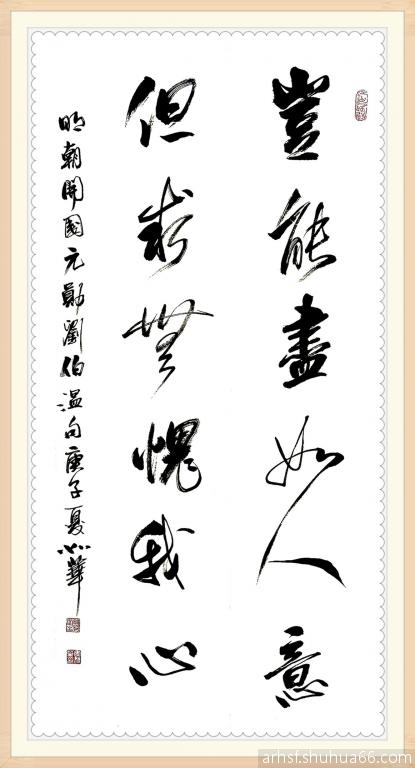 豈能盡如人意
但求無愧我心
明朝開國元勛劉伯溫句庚子夏心華
arhsf.shuhua66.com